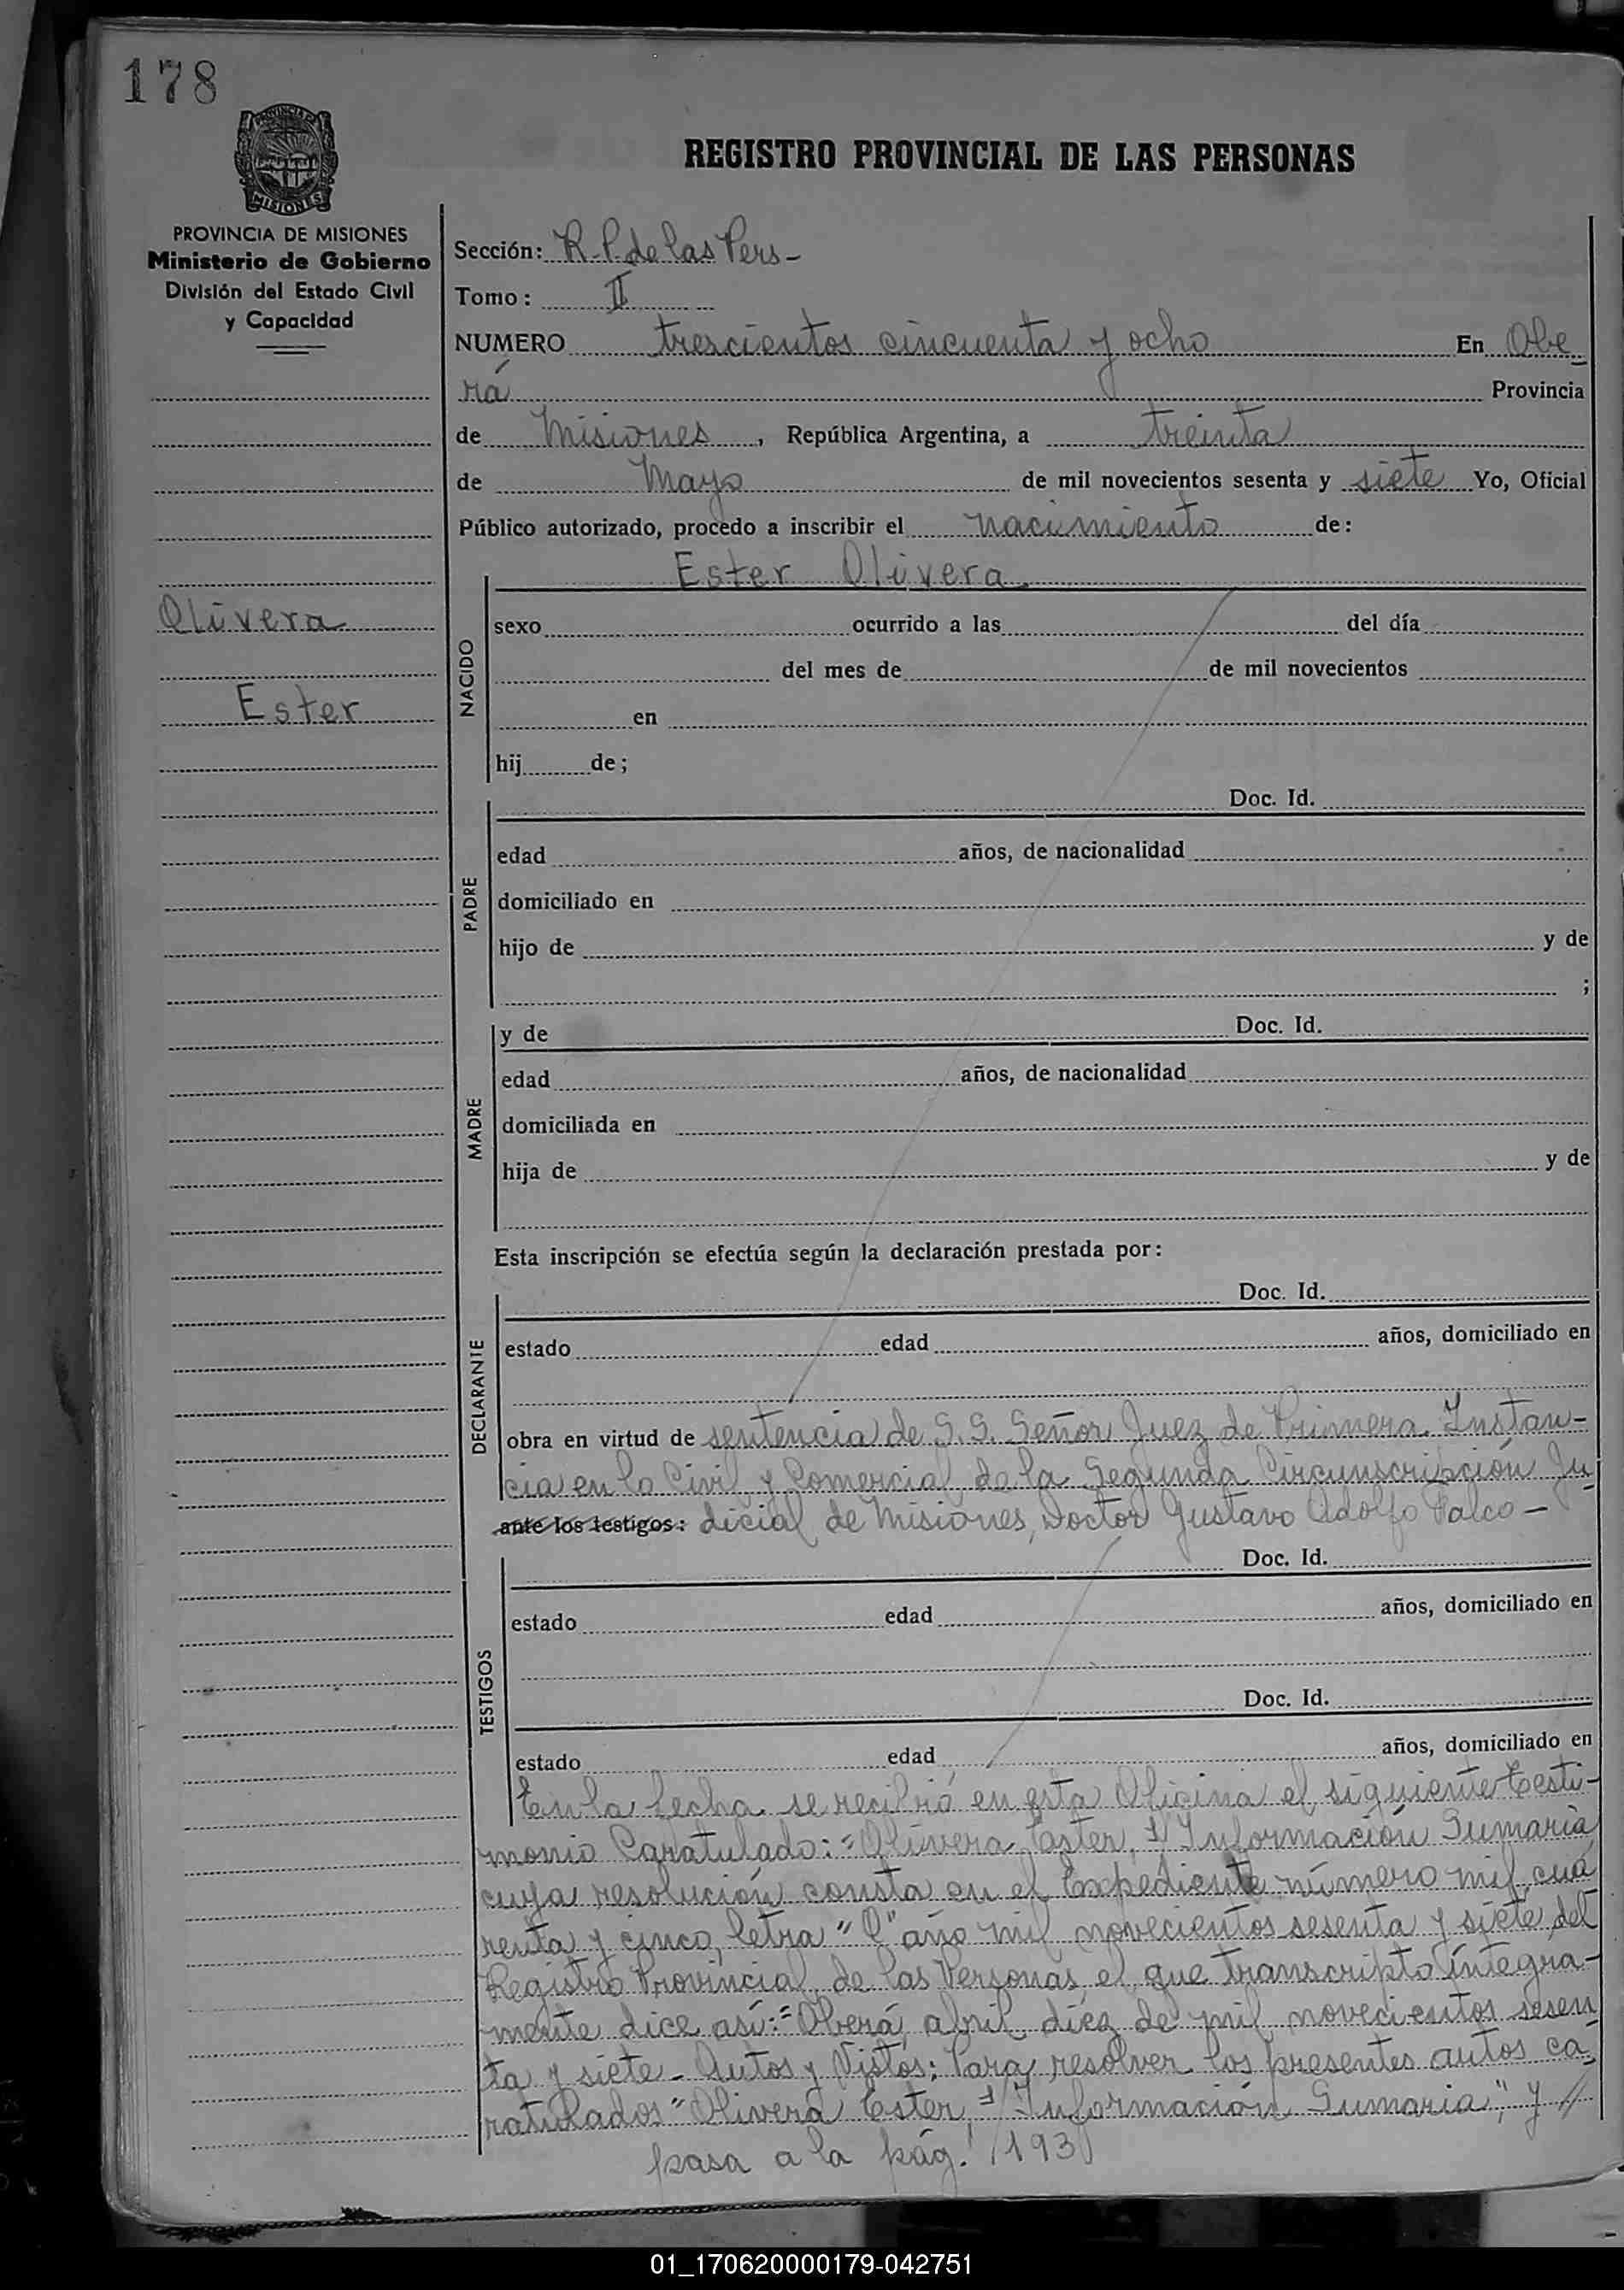 178
PROVINCIA DE
MISIONES
REGISTRO PROVINCIAL DE LAS PERSONAS
PROVINCIA DE MISIONES
Ministerio de Gobierno
División del Estado Civil
y Capacidad
Olivera
Ester
Sección: R. P. de las Pers-
Tomo: II
NUMERO trescientos cincuenta y ocho En Obe
rá Provincia
de Misiones, República Argentina, a treinta
de Mayo de mil novecientos sesenta y siete Yo, Oficial
Público autorizado, procedo a inscribir el nacimiento de:
Ester Olivera
NACIDO
sexo ocurrido a las del día
del mes de de mil novecientos
en
hij de;
PADRE
Doc. Id.
edad años, de nacionalidad
domiciliado en
hijo de y de
;
MADRE
y de Doc. Id.
edad años, de nacionalidad
domiciliada en
hija de y de
Esta inscripción se efectúa según la declaración prestada por:
DECLARANTE
Doc. Id.
estado edad años, domiciliado en
obra en virtud de sentencia de S. S. Señor Juez de Primera Instan-
cia en lo Civil y Comercial de la Segunda Circunscripción Ju
ante los testigos: dicial de Misiones, Doctor Gustavo Adolfo Falco-
TESTIGOS
Doc. Id.
estado edad años, domiciliado en
Doc. Id.
estado edad años, domiciliado en
En la fecha se recibió en esta Oficina el siguiente Testi-
monio Caratulado: "Olivera Ester, s/ Información Sumaria
cuya resolución consta en el Expediente número mil cua
renta y cinco, letra "O" año mil novecientos sesenta y siete, del
Registro Provincial de las Personas, el que transcripto íntegra-
mente dice así: "Oberá, abril diez de mil novecientos sesen
ta y siete - Autos y Vistos: Para resolver los presentes autos ca-
ratulados "Olivera Ester, s/ Información Sumaria", y //
pasa a la pág. /193/
01_170620000179-042751